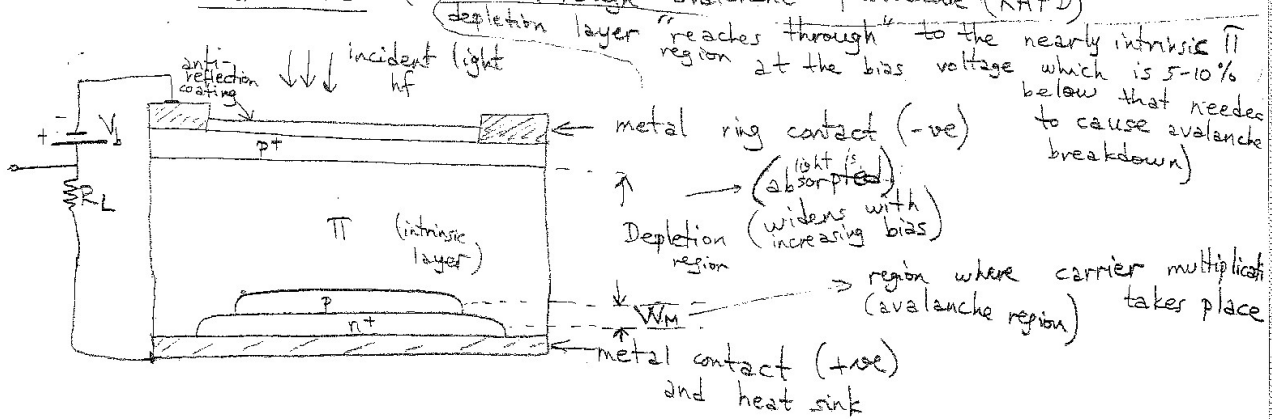 (RAPD)
(depletion layer "reaches through" to the nearly intrinsic Π
region at the bias voltage which is 5-10%
below that needed
to cause avalanche
breakdown)
anti-
reflection
coating
incident light
hf
- 
+ Vb
RL
p+
metal ring contact (-ve)
(light is
absorpted)
Π (intrinsic
layer)
Depletion
region
(widens with
increasing bias)
p
n+
WM
region where carrier multiplicati
takes place
(avalanche region)
metal contact (+ve)
and heat sink